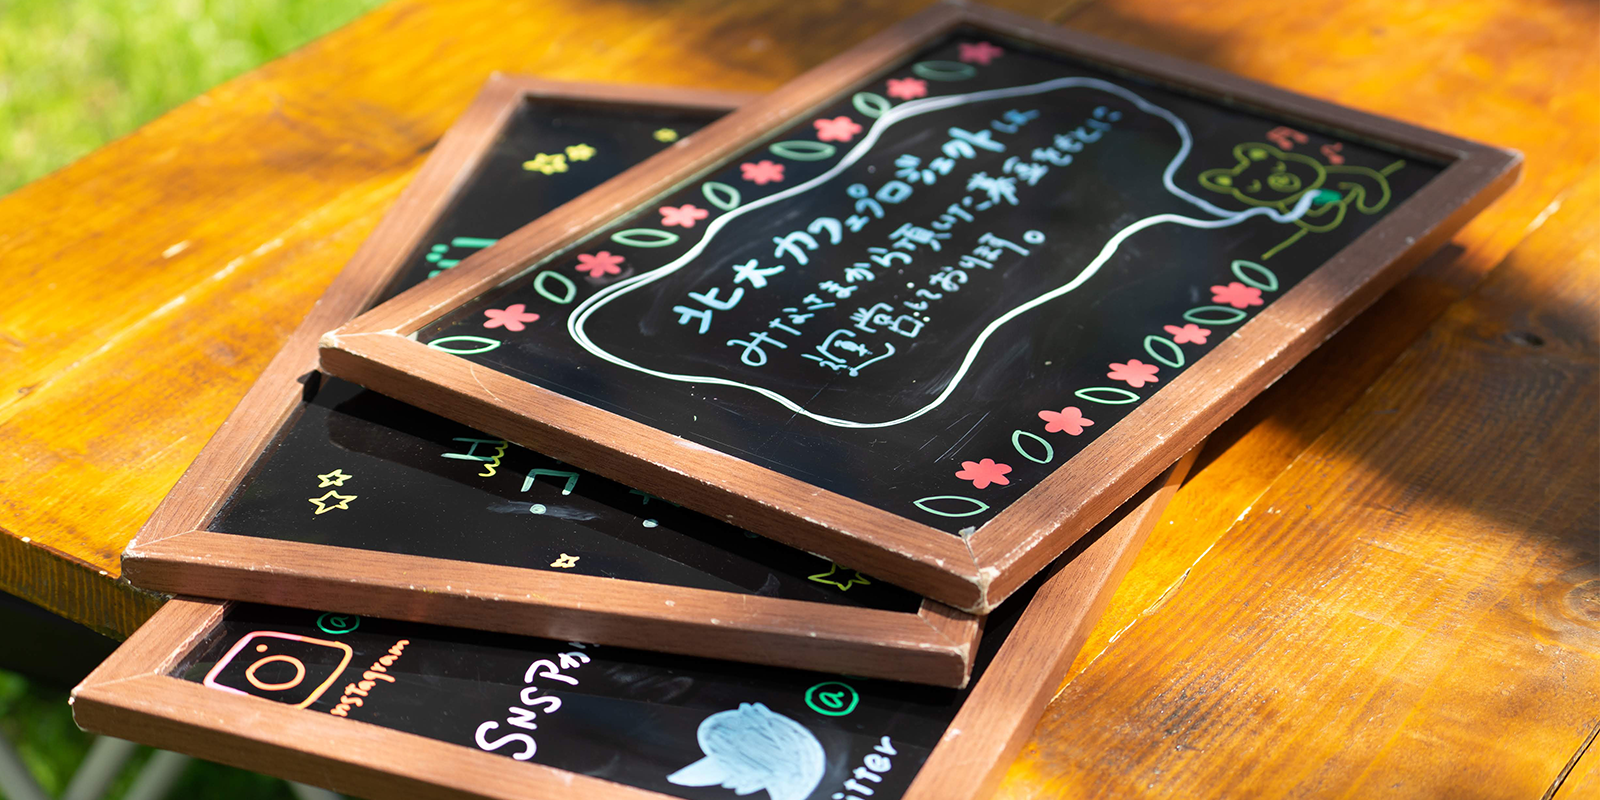 北大カフェプロジェクトは
みなさまから頂いた募金をもとに
運営しております。
Hi
@
Instagram
SNSアカ
@
itter